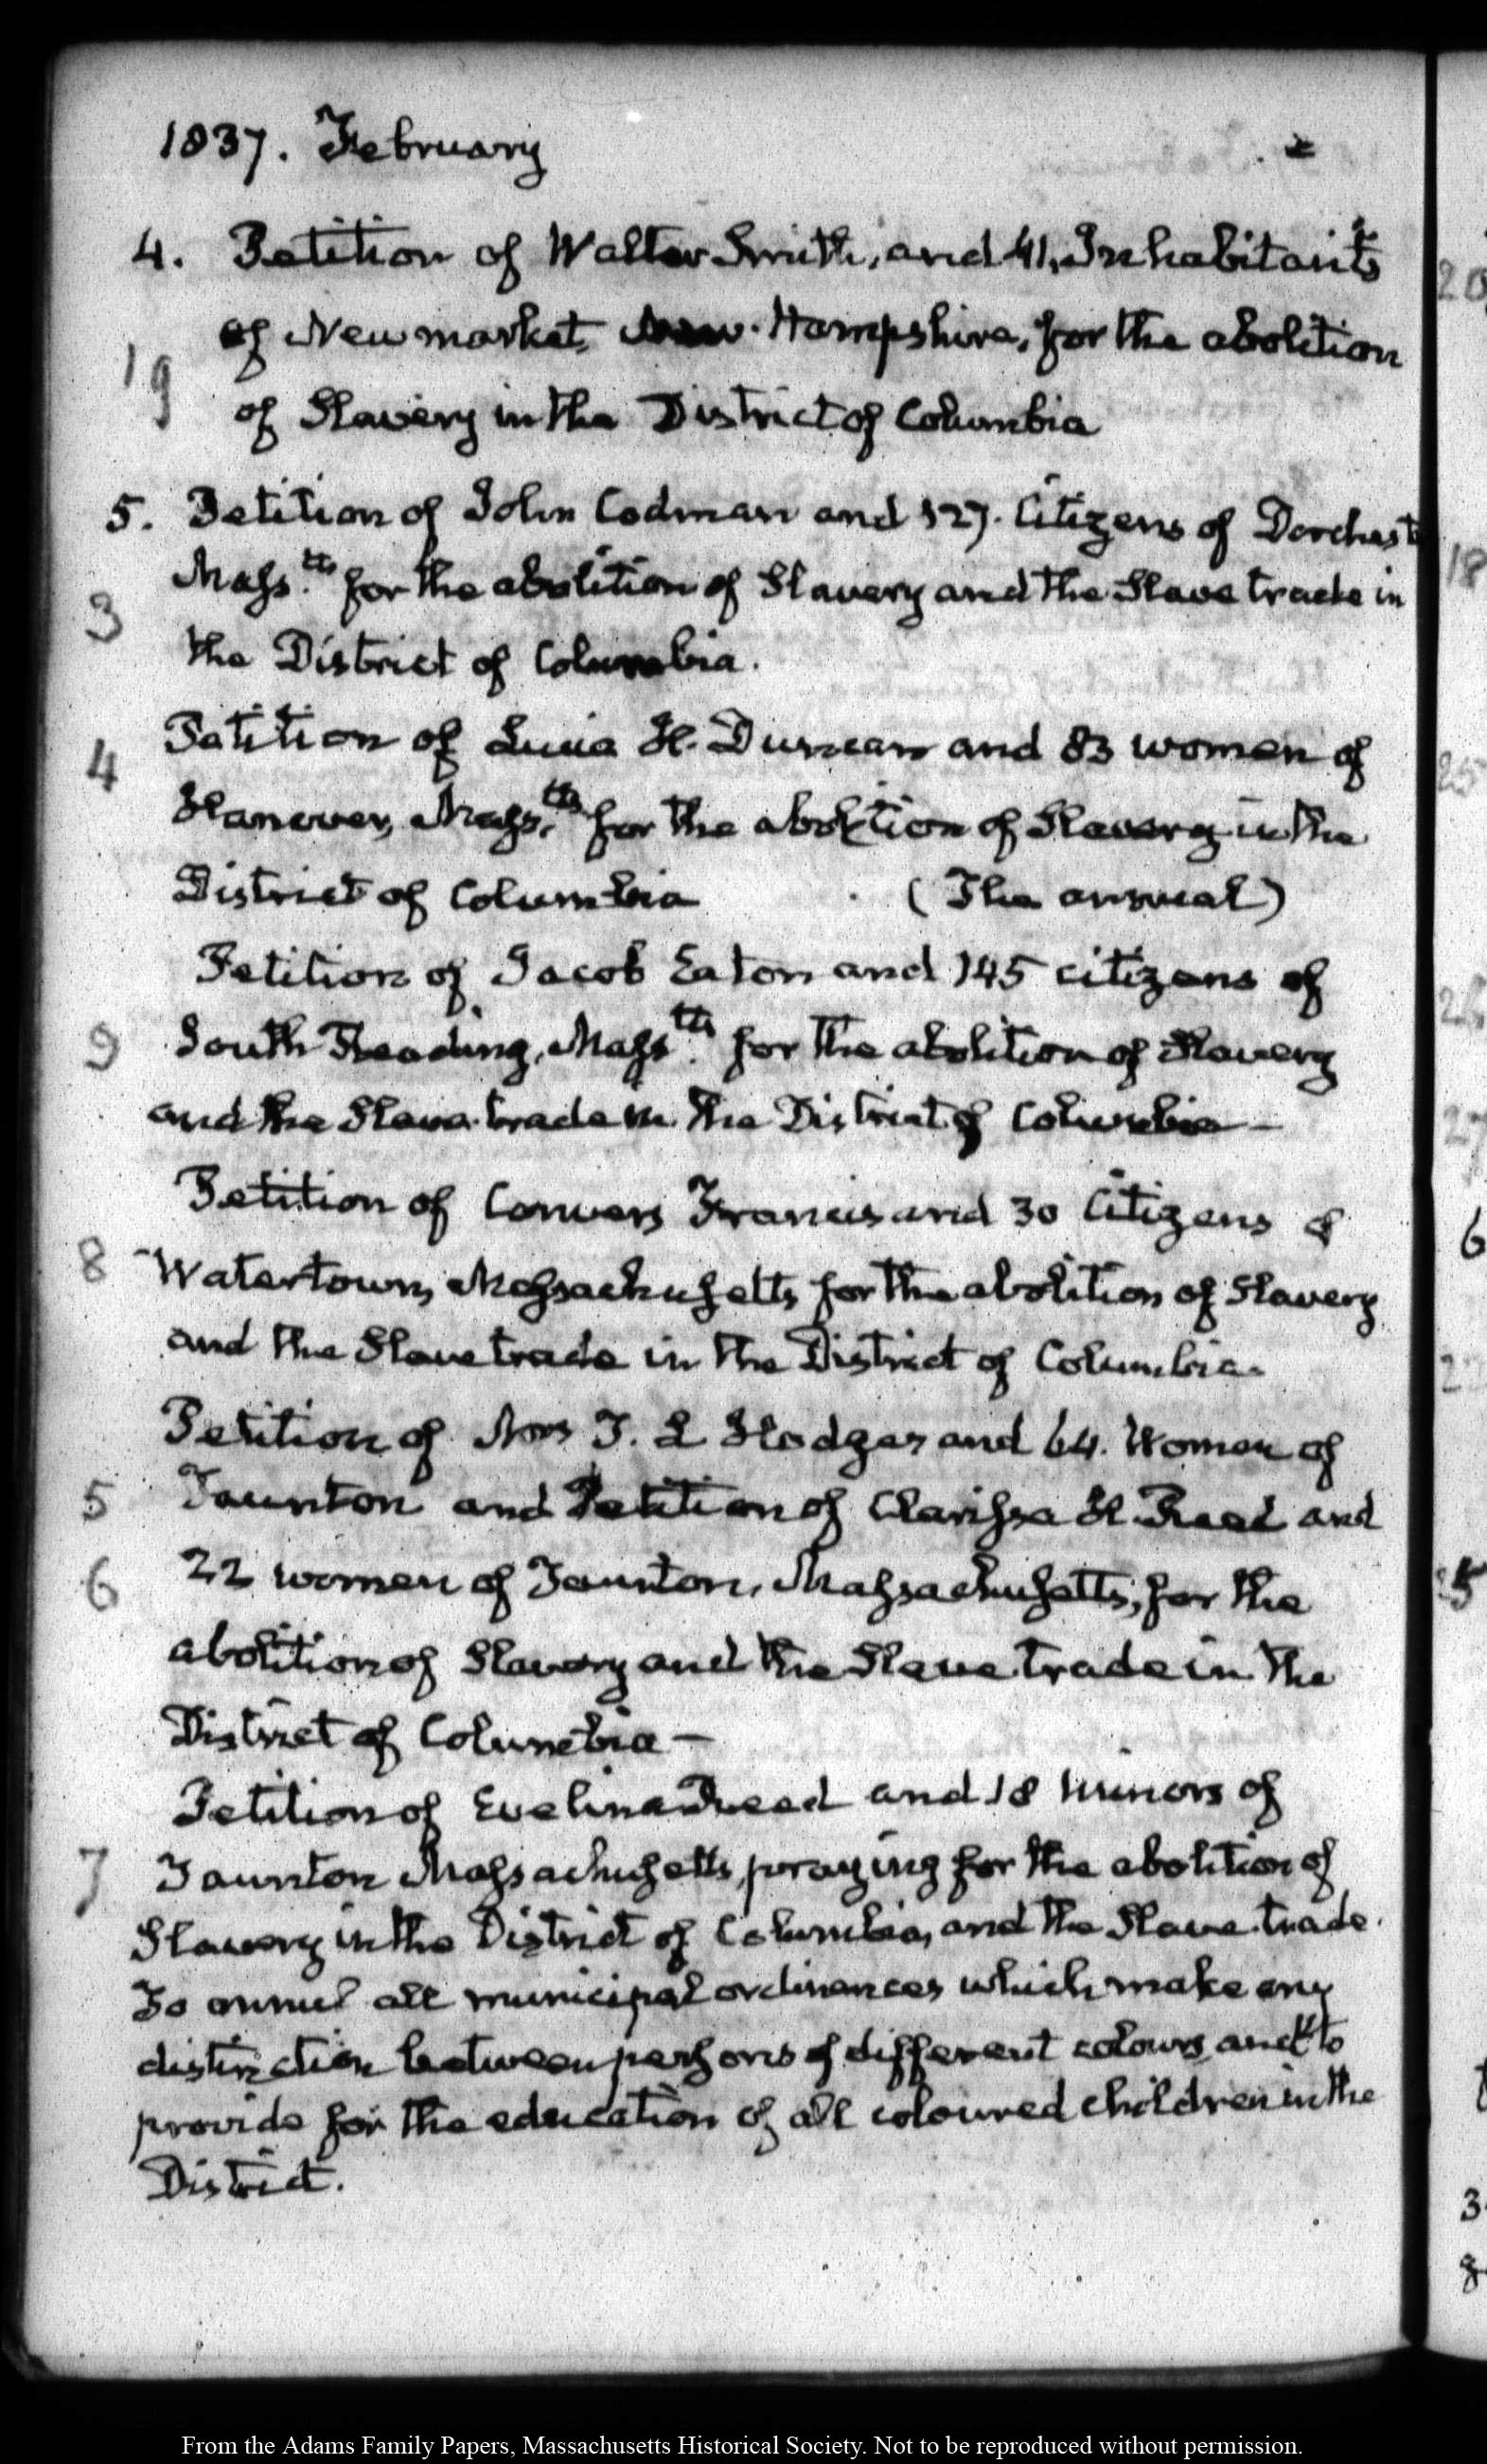 1837. February
4. Petition of Walter Smith, and 41, Inhabitants
of Newmarket, New-Hampshire, for the abolition
19
of Slavery in the District of Columbia
5. Petition of John Codman and 127. Citizens of Dorchest
Mass.tts for the abolition of Slavery and the Slave trade in
3
the District of Columbia.
Petition of H. Duncan and 83 women of
4
Hanover, Mass.tts for the abolition of Slavery in the
District of Columbia (The annual)
Petition of Jacob Eaton and 145 citizens of
9 South Reading, Mass.tts for the abolition of Slavery
and the Slave-trade in the District of Columbia—
Petition of Convers Francis and 30 Citizens of
8 Watertown, Massachusetts, for the abolition of Slavery
and the Slave trade in the District of Columbia.
Petition of Mrs T. L Hodges and 64. Women of
5 Taunton and Petition of Clarissa H. Reed and
6 22 women of Taunton, Massachusetts, for the
abolition of Slavery and the Slave trade in the
District of Columbia—
Petition of Evelina Reed and 18 minors of
7 Taunton Massachusetts, praying for the abolition of
Slavery in the District of Columbia, and the Slave-trade.
To annul all municipal ordinances which make any
distinction between persons of different colours, and to
provide for the education of all coloured children in the
District.
From the Adams Family Papers, Massachusetts Historical Society. Not to be reproduced without permission.